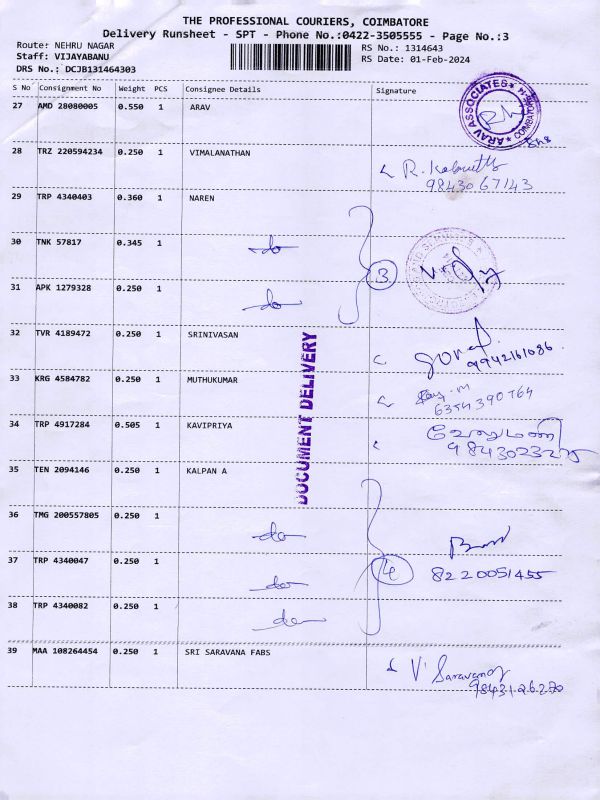 THE PROFESSIONAL COURIERS, COIMBATORE
Delivery Runsheet - SPT - Phone No.:0422-3505555 - Page No.:3
Route: NEHRU NAGAR
Staff: VIJAYABANU
DRS No.: DCJB131464303
RS No.: 1314643
RS Date: 01-Feb-2024
S No Consignment No Weight PCS Consignee Details Signature
27 AMD 28080005 0.550 1 ARAV
ARAV ASSOCIATES
COIMBATORE
28 TRZ 220594234 0.250 1 VIMALANATHAN
98430 67143
29 TRP 4340403 0.360 1 NAREN
30 TNK 57817 0.345 1 do
31 APK 1279328 0.250 1 do
3
32 TVR 4189472 0.250 1 SRINIVASAN
9942161086
33 KRG 4584782 0.250 1 MUTHUKUMAR
6354390764
34 TRP 4917284 0.505 1 KAVIPRIYA
வேலுமணி
9843023275
35 TEN 2094146 0.250 1 KALPAN A
36 TMG 200557805 0.250 1 do
37 TRP 4340047 0.250 1 do
4
8220051455
38 TRP 4340082 0.250 1 do
39 MAA 108264454 0.250 1 SRI SARAVANA FABS
V. Saravanan
98431-26270
DOCUMENT DELIVERY